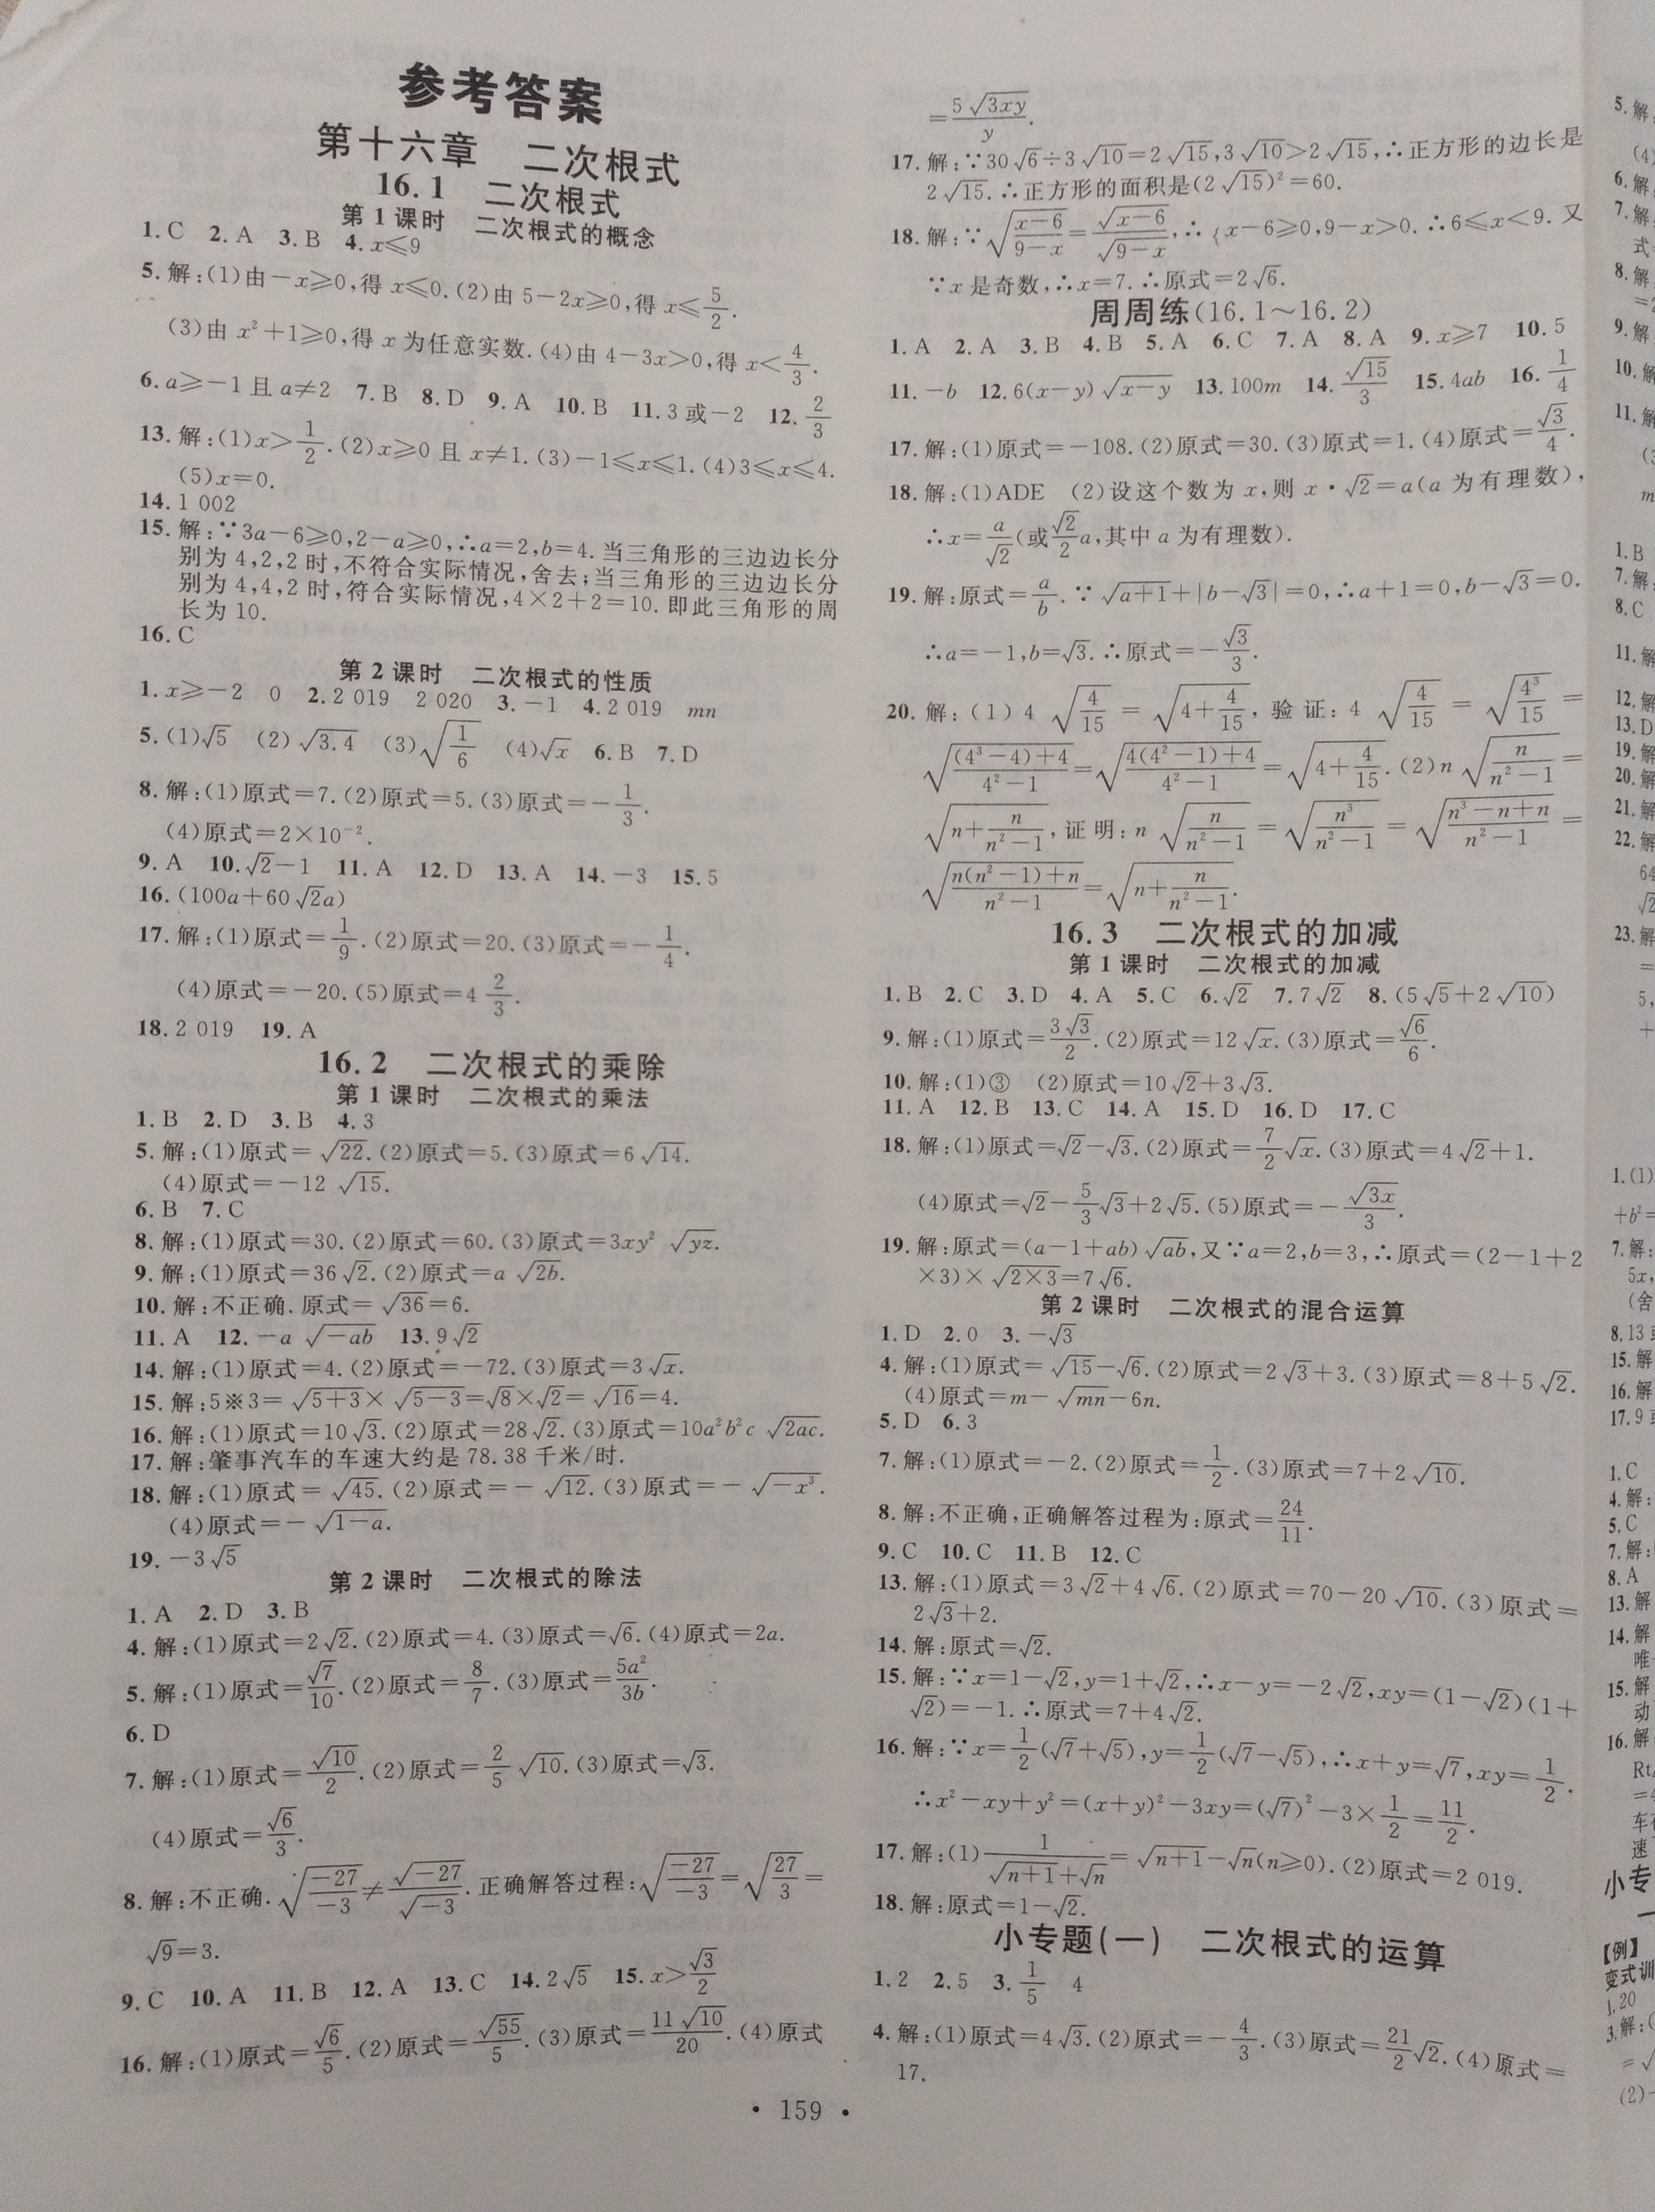 参考答案
第十六章 二次根式
16.1 二次根式
第1课时 二次根式的概念
1.C 2.A 3.B 4.x≤9
5.解:(1)由-x≥0,得 x≤0.(2)由 5-2x≥0,得 x≤5/2.
(3)由 x²+1≥0,得 x 为任意实数.(4)由 4-3x>0,得 x<4/3.
6.a≥-1 且 a≠2 7.B 8.D 9.A 10.B 11.3 或-2 12.2/3
13.解:(1)x>1/2.(2)x≥0 且 x≠1.(3)-1≤x≤1.(4)3≤x≤4.
(5)x=0.
14.1 002
15.解:∵3a-6≥0,2-a≥0,∴a=2,b=4.当三角形的三边边长分
别为 4,2,2 时,不符合实际情况,舍去;当三角形的三边边长分
别为 4,4,2 时,符合实际情况,4×2+2=10.即此三角形的周
长为 10.
16.C
第2课时 二次根式的性质
1.x≥-2 0 2.2 019 2 020 3.-1 4.2 019 mn
5.(1)√5 (2)√3.4 (3)√(1/6) (4)√x 6.B 7.D
8.解:(1)原式=7.(2)原式=5.(3)原式=-1/3.
(4)原式=2×10⁻².
9.A 10.√2-1 11.A 12.D 13.A 14.-3 15.5
16.(100a+60√2a)
17.解:(1)原式=1/9.(2)原式=20.(3)原式=-1/4.
(4)原式=-20.(5)原式=4 2/3.
18.2 019 19.A
16.2 二次根式的乘除
第1课时 二次根式的乘法
1.B 2.D 3.B 4.3
5.解:(1)原式=√22.(2)原式=5.(3)原式=6√14.
(4)原式=-12√15.
6.B 7.C
8.解:(1)原式=30.(2)原式=60.(3)原式=3xy²√(yz).
9.解:(1)原式=36√2.(2)原式=a√(2b).
10.解:不正确.原式=√36=6.
11.A 12.-a√(-ab) 13.9√2
14.解:(1)原式=4.(2)原式=-72.(3)原式=3√x.
15.解:5※3=√(5+3)×√(5-3)=√8×√2=√16=4.
16.解:(1)原式=10√3.(2)原式=28√2.(3)原式=10a²b²c√(2ac).
17.解:肇事汽车的车速大约是 78.38 千米/时.
18.解:(1)原式=√45.(2)原式=-√12.(3)原式=-√(-x³).
(4)原式=-√(1-a).
19.-3√5
第2课时 二次根式的除法
1.A 2.D 3.B
4.解:(1)原式=2√2.(2)原式=4.(3)原式=√6.(4)原式=2a.
5.解:(1)原式=√7/10.(2)原式=8/7.(3)原式=5a²/3b.
6.D
7.解:(1)原式=√10/2.(2)原式=2/5√10.(3)原式=√3.
(4)原式=√6/3.
8.解:不正确.√(-27/-3)≠√-27/√-3.正确解答过程:√(-27/-3)=√(27/3)=
√9=3.
9.C 10.A 11.B 12.A 13.C 14.2√5 15.x>√3/2
16.解:(1)原式=√6/5.(2)原式=√55/5.(3)原式=11√10/20.(4)原式
=5√(3xy)/y.
17.解:∵30√6÷3√10=2√15,3√10>2√15,∴正方形的边长是
2√15.∴正方形的面积是(2√15)²=60.
18.解:∵√((x-6)/(9-x))=√(x-6)/√(9-x),∴{x-6≥0,9-x>0.∴6≤x<9.又
∵x 是奇数,∴x=7.∴原式=2√6.
周周练(16.1~16.2)
1.A 2.A 3.B 4.B 5.A 6.C 7.A 8.A 9.x≥7 10.5
11.-b 12.6(x-y)√(x-y) 13.100m 14.√15/3 15.4ab 16.1/4
17.解:(1)原式=-108.(2)原式=30.(3)原式=1.(4)原式=√3/4.
18.解:(1)ADE (2)设这个数为 x,则 x·√2=a(a 为有理数),
∴x=a/√2(或√2/2a,其中 a 为有理数).
19.解:原式=a/b.∵√(a+1)+|b-√3|=0,∴a+1=0,b-√3=0.
∴a=-1,b=√3.∴原式=-√3/3.
20.解:(1)4√(4/15)=√(4+4/15),验证:4√(4/15)=√(4³/15)=
√(((4³-4)+4)/(4²-1))=√((4(4²-1)+4)/(4²-1))=√(4+4/15).(2)n√(n/(n²-1))=
√(n+n/(n²-1)),证明:n√(n/(n²-1))=√(n³/(n²-1))=√((n³-n+n)/(n²-1))=
√((n(n²-1)+n)/(n²-1))=√(n+n/(n²-1)).
16.3 二次根式的加减
第1课时 二次根式的加减
1.B 2.C 3.D 4.A 5.C 6.√2 7.7√2 8.(5√5+2√10)
9.解:(1)原式=3√3/2.(2)原式=12√x.(3)原式=√6/6.
10.解:(1)③ (2)原式=10√2+3√3.
11.A 12.B 13.C 14.A 15.D 16.D 17.C
18.解:(1)原式=√2-√3.(2)原式=7/2√x.(3)原式=4√2+1.
(4)原式=√2-5/3√3+2√5.(5)原式=-√(3x)/3.
19.解:原式=(a-1+ab)√(ab),又∵a=2,b=3,∴原式=(2-1+2
×3)×√(2×3)=7√6.
第2课时 二次根式的混合运算
1.D 2.0 3.-√3
4.解:(1)原式=√15-√6.(2)原式=2√3+3.(3)原式=8+5√2.
(4)原式=m-√(mn)-6n.
5.D 6.3
7.解:(1)原式=-2.(2)原式=1/2.(3)原式=7+2√10.
8.解:不正确,正确解答过程为:原式=24/11.
9.C 10.C 11.B 12.C
13.解:(1)原式=3√2+4√6.(2)原式=70-20√10.(3)原式=
2√3+2.
14.解:原式=√2.
15.解:∵x=1-√2,y=1+√2,∴x-y=-2√2,xy=(1-√2)(1+
√2)=-1.∴原式=7+4√2.
16.解:∵x=1/2(√7+√5),y=1/2(√7-√5),∴x+y=√7,xy=1/2.
∴x²-xy+y²=(x+y)²-3xy=(√7)²-3×1/2=11/2.
17.解:(1)1/(√(n+1)+√n)=√(n+1)-√n(n≥0).(2)原式=2 019.
18.解:原式=1-√2.
小专题(一) 二次根式的运算
1.2 2.5 3.1/5 4
4.解:(1)原式=4√3.(2)原式=-4/3.(3)原式=21/2√2.(4)原式=
17.
· 159 ·
5.解
(4)
6.解
7.解
式=
8.解
=2
9.解
10.解
11.解
(3
m
1.B
7.解
8.C
11.解
12.解
13.D
19.解
20.解
21.解
22.解
64
√2
23.解
=
5,
+
1.(1)
+b²=
7.解:
5x,
(舍
8.13
15.解
16.解
17.9
1.C
4.解:
5.C
7.解:
8.A
13.解
14.解
唯
15.解
动
16.解
Rt
=4
车
速
小专
【例】
变式训
1.20
3.解:(
=√
(2)-